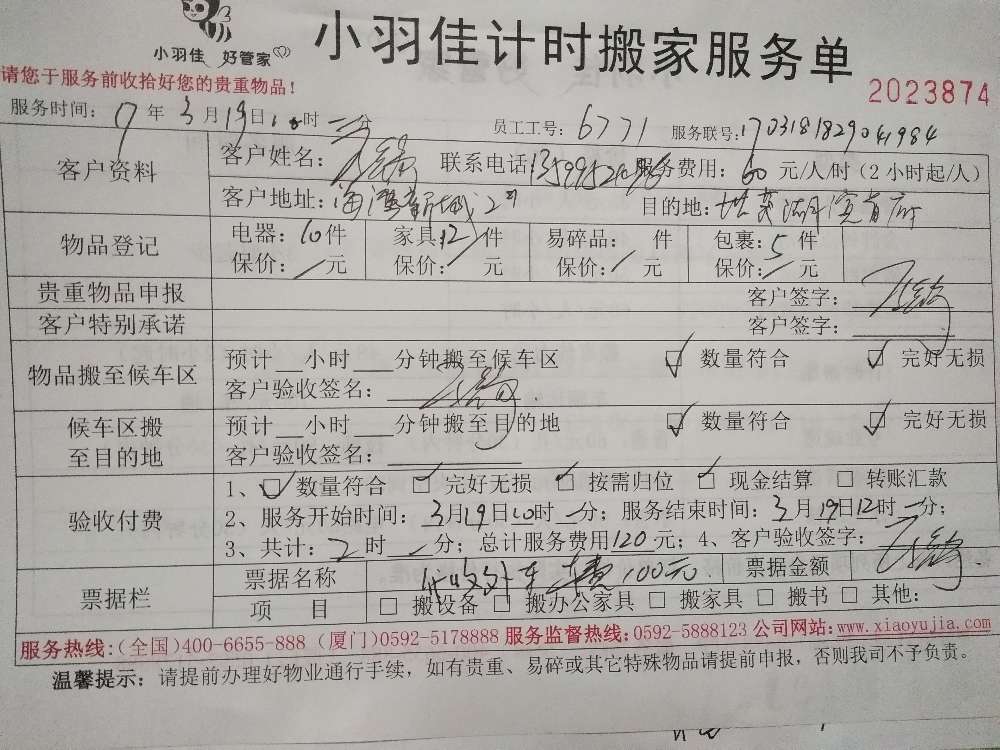 小羽佳 好管家
小羽佳计时搬家服务单
请您于服务前收拾好您的贵重物品!
2023874
服务时间: 17年3月19日10时 分
员工工号: 6771 服务联号: 170318182904984
客户资料
客户姓名: 联系电话: 服务费用: 60 元/人/时 (2小时起/人)
客户地址: 海湾新城2 目的地:
物品登记
电器: 10件 家具: 12件 易碎品: 件 包裹: 5件
保价: / 元 保价: / 元 保价: / 元 保价: / 元
贵重物品申报 客户签字:
客户特别承诺 客户签字:
物品搬至候车区
预计__小时___分钟搬至候车区 ☑ 数量符合 ☑ 完好无损
客户验收签名:
候车区搬至目的地
预计__小时___分钟搬至目的地 ☑ 数量符合 ☑ 完好无损
客户验收签名:
验收付费
1、☑ 数量符合 ☑ 完好无损 ☑ 按需归位 ☑ 现金结算 □ 转账汇款
2、服务开始时间: 3月19日10时 分; 服务结束时间: 3月19日12时 分;
3、共计: 2时 分; 总计服务费用120元; 4、客户验收签字:
票据栏
票据名称 代收 车费100元. 票据金额
项 目 □ 搬设备 □ 搬办公家具 □ 搬家具 □ 搬书 □ 其他:
服务热线:(全国)400-6655-888 (厦门)0592-5178888 服务监督热线:0592-5888123 公司网站:www.xiaoyujia.com
温馨提示: 请提前办理好物业通行手续，如有贵重、易碎或其它特殊物品请提前申报，否则我司不予负责。